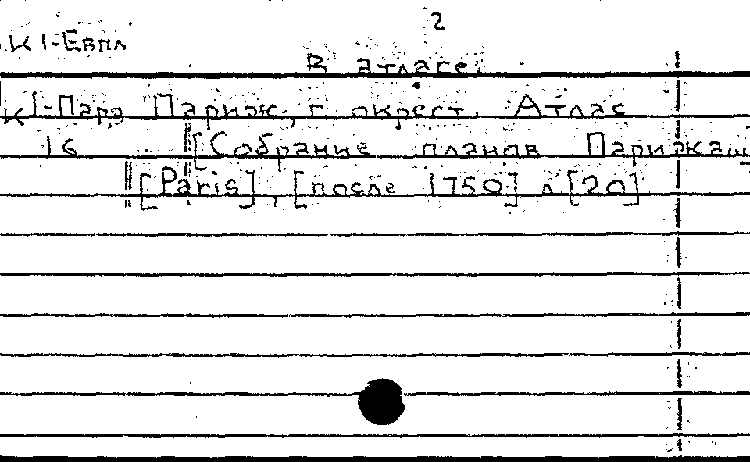 2
К 1-Евпл
В атласе:
К 1-Парэ Париж, г. окрест. Атлас
16 [Собрание планов Парижа]
[Paris], [после 1750] л [20]